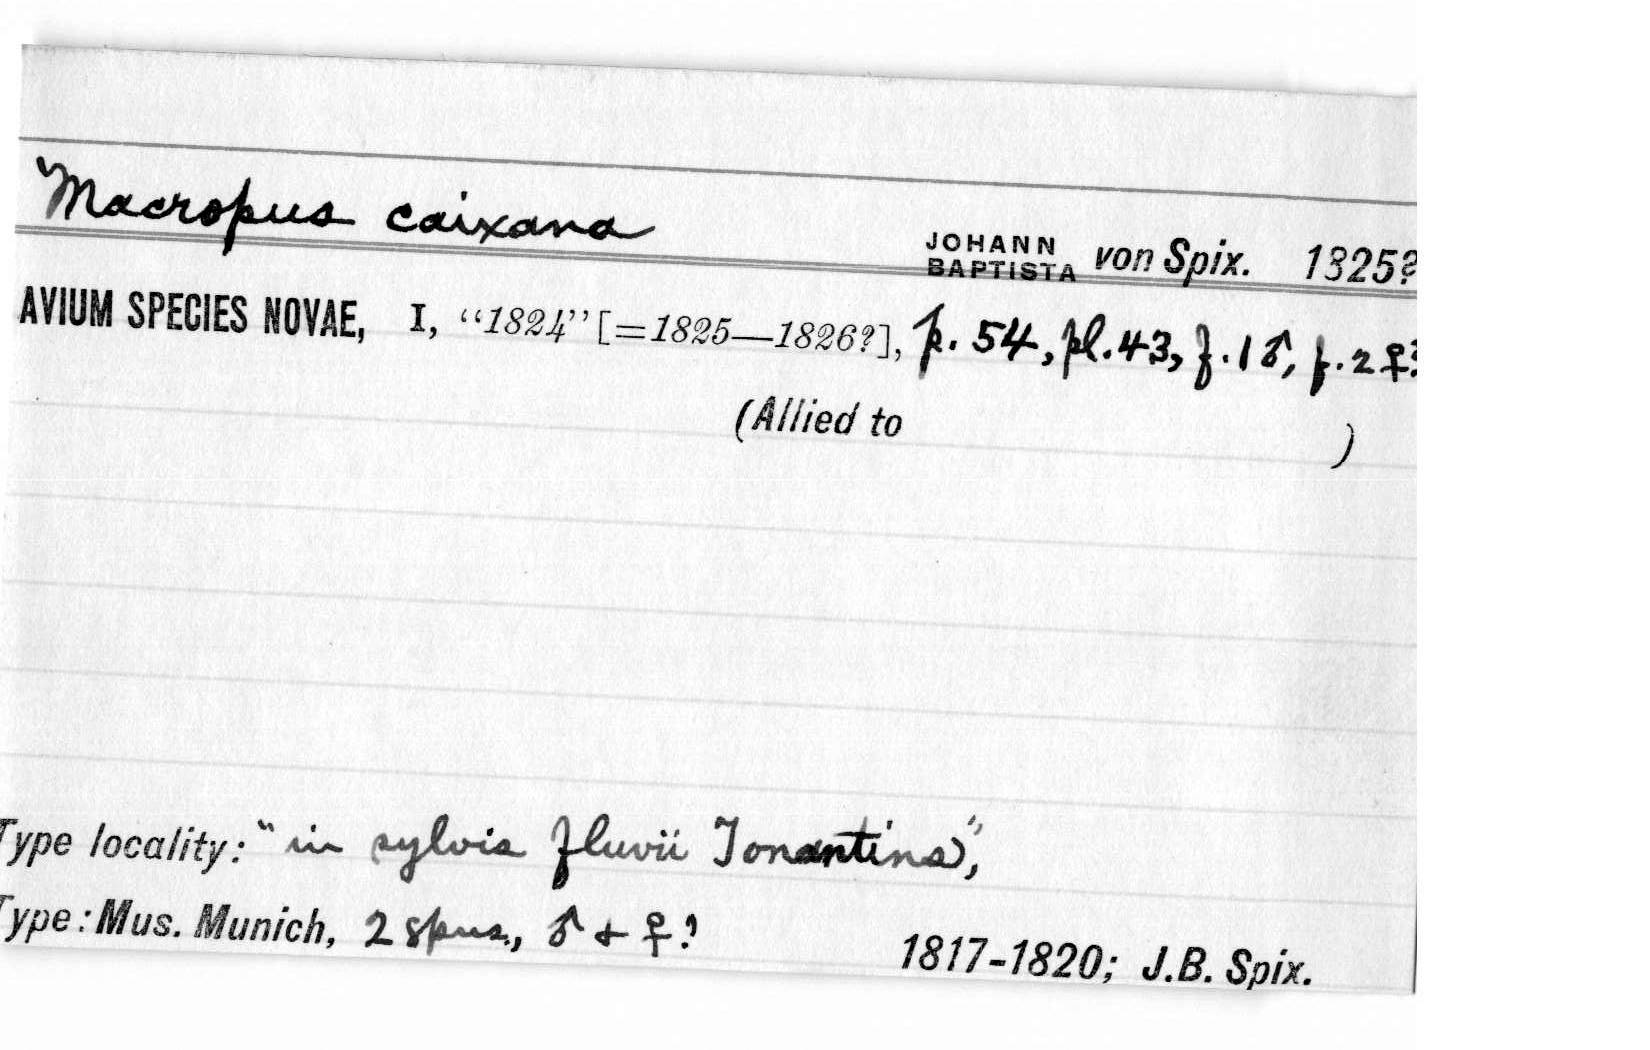 Macropus caixana
JOHANN BAPTISTA von Spix. 1825?
AVIUM SPECIES NOVAE, I, “1824” [=1825—1826?], p. 54, pl. 43, f. 1 ♂, f. 2 ♀?
(Allied to )
Type locality: “in sylvis fluvii Tonantins”,
Type: Mus. Munich, 2 spns., ♂ + ♀?
1817-1820; J.B. Spix.